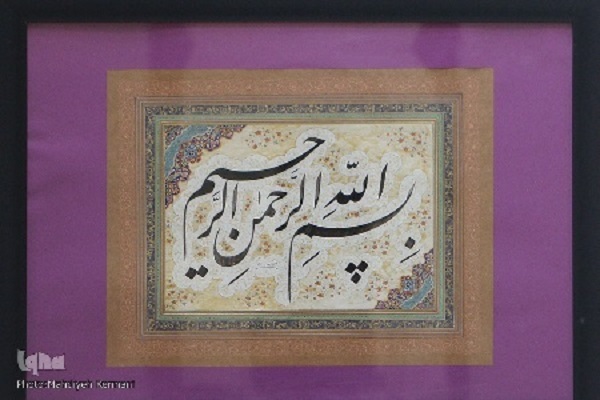 بِسمِ اللّٰهِ الرَّحمٰنِ الرَّحیم
iqna
Photo:Mahdiyeh Kermani